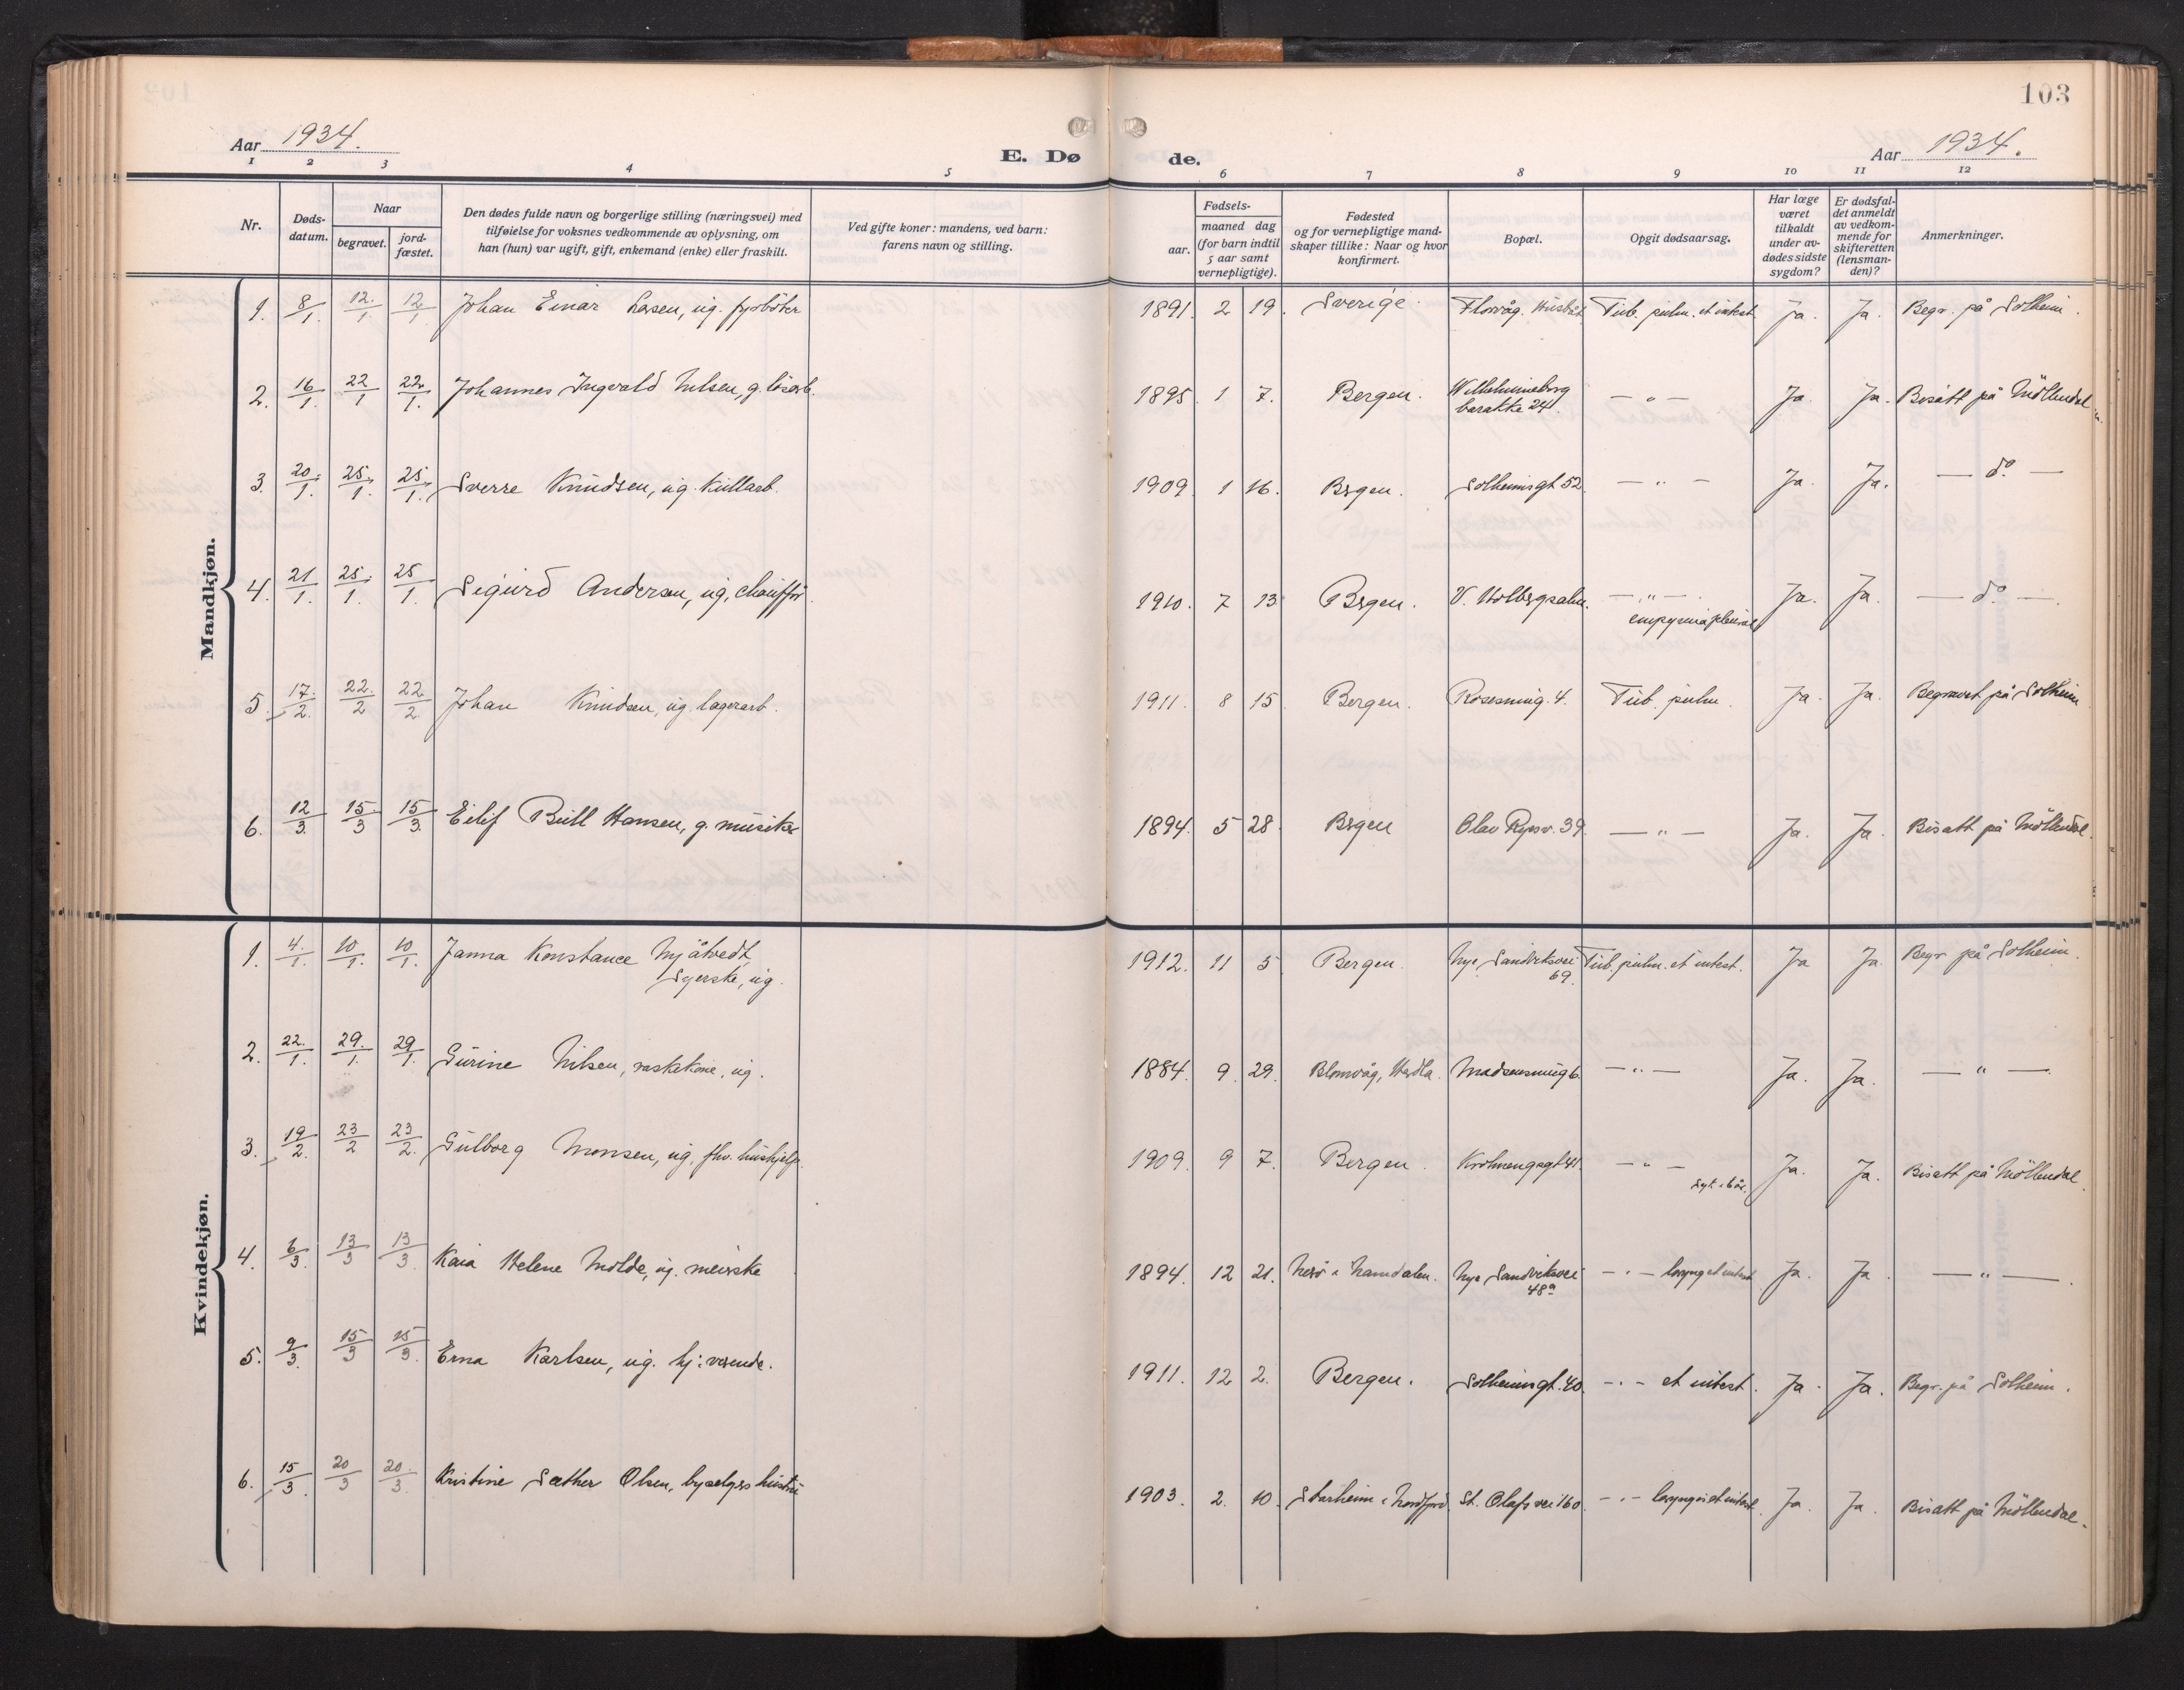 103
Aar 1934.
E. Døde.
Aar 1934.
1 2 3 4 5 6 7 8 9 10 11 12
Nr.
Døds-datum.
Naar
begravet.
jord-fæstet.
Den dødes fulde navn og borgerlige stilling (næringsvei) med
tilføielse for voksnes vedkommende av oplysning, om
han (hun) var ugift, gift, enkemand (enke) eller fraskilt.
Ved gifte koner: mandens, ved barn:
farens navn og stilling.
Fødsels-
aar.
maaned dag
(for barn indtil
5 aar samt
vernepligtige).
Fødested
og for vernepligtige mand-
skaper tillike: Naar og hvor
konfirmert.
Bopæl.
Opgit dødsaarsag.
Har læge
været
tilkaldt
under av-
dødes sidste
sygdom?
Er dødsfal-
det anmeldt
av vedkom-
mende for
skifteretten
(lensman-
den)?
Anmerkninger.
Mandkjøn.
1. 8/1. 12./1 12/1. Johan Einar Larsen, ug. fyrbøter 1891. 2 19. Sverige. Florvåg. Husbåt Tub. pulm. et intest. Ja. Ja. Begr. på Solheim.
2. 16/1. 22/1 22/1. Johannes Ingvald Nilsen, g. løsarb. 1895. 1 7. Bergen. Wilhelmineborg
barakke 24. — " — Ja. Ja. Bisatt på Möllendal
3. 20/1. 25/1. 25/1. Sverre Knudsen, ug. kullarb. 1909. 1 16. Bergen. Solheimsgt 52. — " — Ja. Ja. — do —
4. 21/1. 25/1. 25/1. Sigurd Andersen, ug, chauffør. 1910. 7 13 Bergen. V. Holbergsalm. — " —
empyema pleurae Ja. Ja. — do —
5. 17/2. 22/2 22/2 Johan Knudsen, ug. lagerarb. 1911. 8 15. Bergen. Rosesmug. 4. Tub. pulm. Ja. Ja. Begravet på Solheim
6. 12/3. 15/3 15/3. Eilif Bull Hansen, g. musiker 1894. 5 28. Bergen Olav Ryesv. 39. — " — Ja. Ja. Bisatt på Möllendal.
Kvindekjøn.
1. 4./1. 10/1. 10/1. Janna Konstance Mjåtvedt,
Syerske, ug. 1912. 11 5. Bergen. Nye Sandviksvei
69. Tub. pulm. et intest. Ja Ja. Begr på Solheim.
2. 22./1. 29./1. 29/1. Gurine Nilsen, vaskekone, ug. 1884. 9. 29. Blomvåg, Herdla. Madsensmug 6. — " — Ja. Ja. — " —
3. 19/2. 23/2 23/2. Gulborg Monsen, ug, fhv. hushjelp. 1909. 9 7. Bergen. Krohnengsgt 41. — " — Ja. Ja. Bisatt på Möllendal.
4. 6/3. 13/3 13/3. Kaia Helene Molde, ug. meierske 1894. 12 21. Nerö i Namdalen. Nye Sandviksvei
48a — " — laryng et intest Ja. Ja. — " —
5. 9/3. 15/3 15/3. Erna Karlsen, ug. hj: verende. 1911. 12 2. Bergen. Solheimsgt. 40. — " — et intest. Ja. Ja. Begr. på Solheim.
6. 15/3. 20/3 20./3. Kristine Sæther Olsen, byselgers hustru 1903. 2. 10. Starheim i Nordfjord St. Olafs vei 160. — " — laryngis et intest. Ja. Ja. Bisatt på Möllendal.